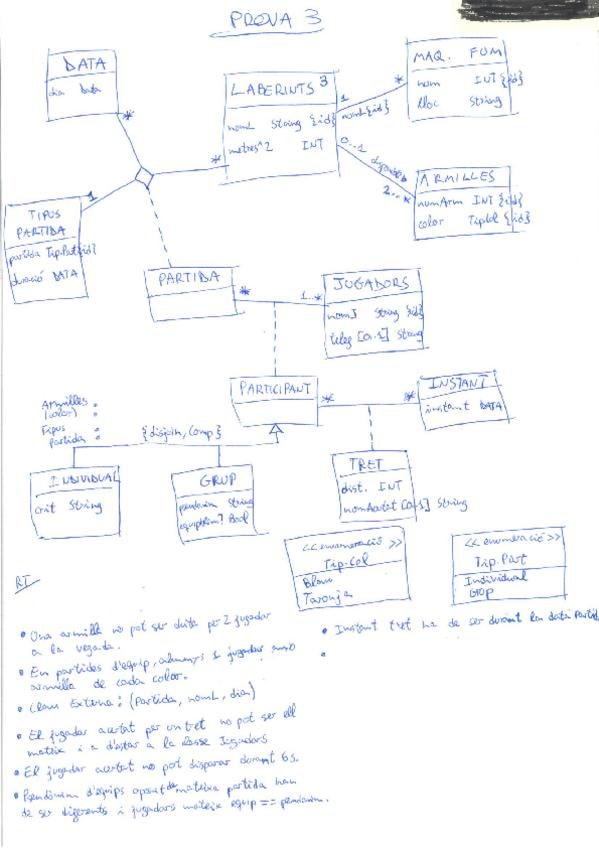 PROVA 3
DATA
dia data
LABERINTS 3
nomL String {id}
metres^2 INT
MAQ. FUM
nom INT {id}
lloc String
1
*
nomL{id}
0..1
disponible
2..*
ARMILLES
numArm INT {id}
color TipCol {id}
*
*
1
TIPUS
PARTIDA
partida Tip.Part{id}
duració DATA
PARTIDA
*
1..*
JUGADORS
nomJ String {id}
telef [0..1] String
PARTICIPANT
*
*
INSTANT
instant DATA
Armilles :
(color) :
Tipus :
partida :
{disjoin, Comp}
INDIVIDUAL
crit String
GRUP
pseudònim String
equip Bool
TRET
dist. INT
nomAcertat [0..1] String
<< enumeració >>
Tip.Col
Blau
Taronja
<< enumeració >>
Tip.Part
Individual
Grop
RI
• Una armilla no pot ser duita per 2 jugador
a la vegada.
• En partides d'equip, almenys 1 jugador amb
armilla de cada color.
• Claus Externa: (Partida, nomL, dia)
• El jugador acertat per un tret no pot ser ell
mateix i a d'estar a la classe Jugadors
• El jugador acertat no pot disparar durant 6s.
• Pseudònim d'equips oposat de mateixa partida han
de ser diferents i jugadors mateix equip == pseudònim.
• Instant tret ha de ser durant la data Partida
•